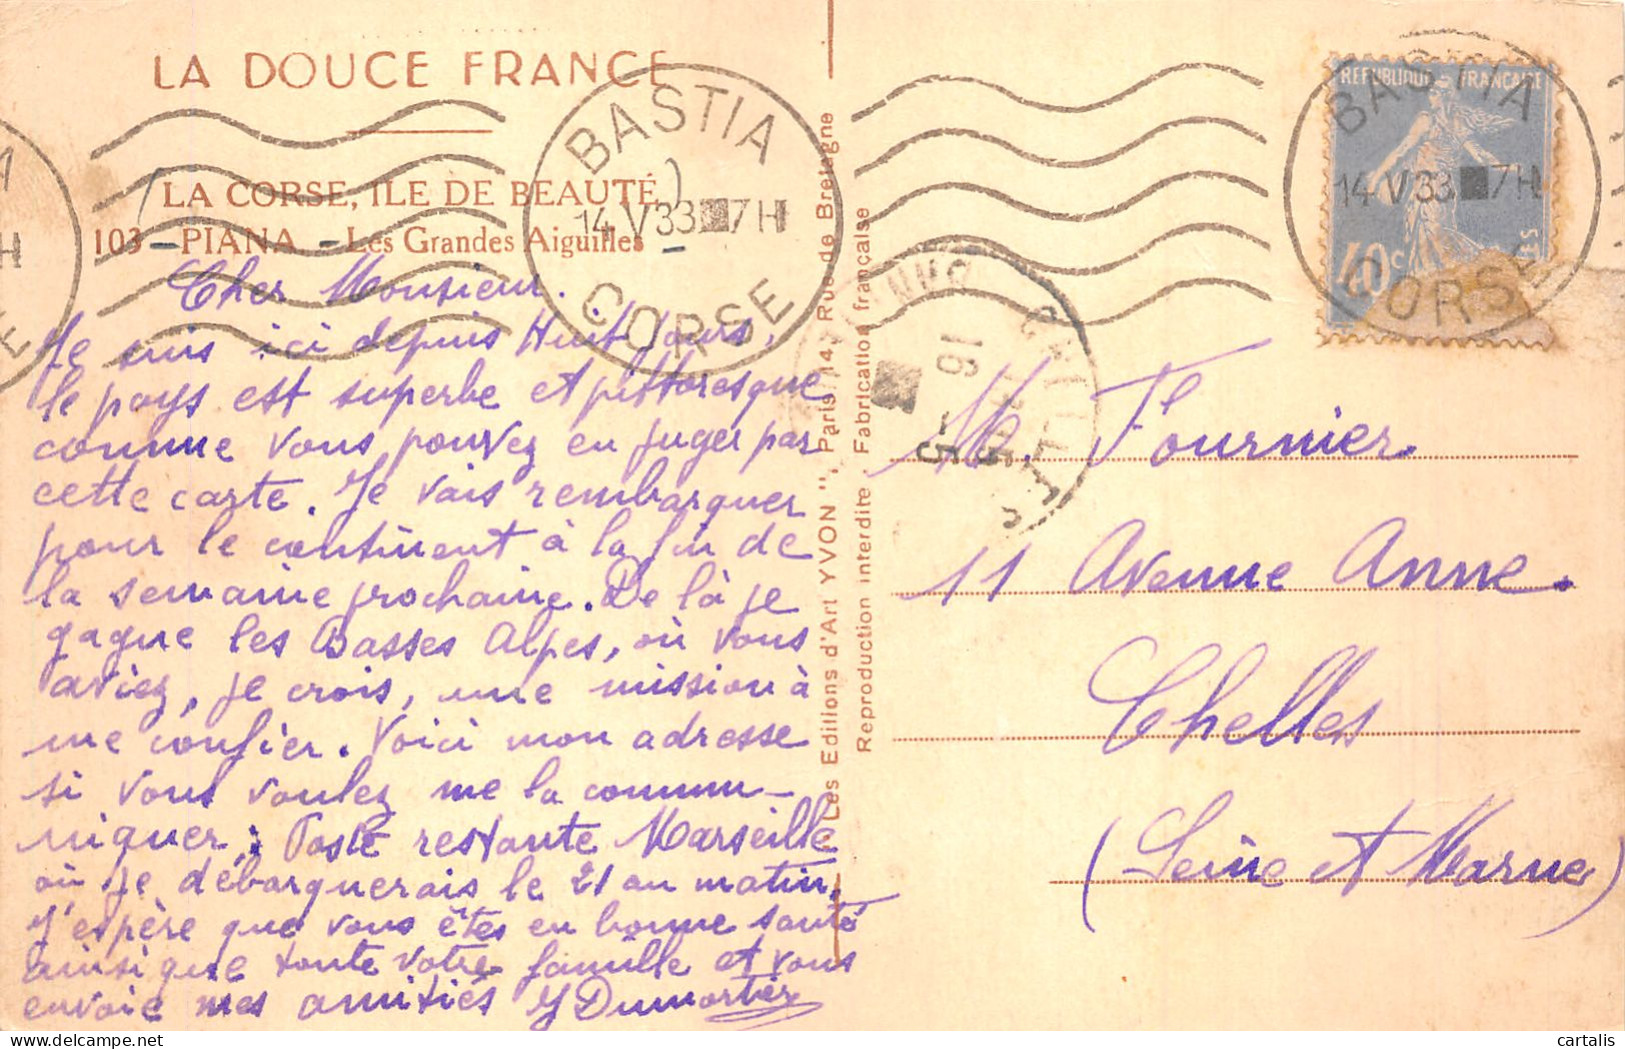 LA DOUCE FRANCE
LA CORSE, ILE DE BEAUTÉ
103 - PIANA - Les Grandes Aiguilles
Cher Monsieur.
Je suis ici depuis Huit Jours,
le pays est superbe et pittoresque
comme vous pouvez en juger par
cette carte. Je vais rembarquer
pour le continent à la fin de
la semaine prochaine. De là je
gagne les Basses Alpes, où vous
aviez, je crois, une mission à
me confier. Voici mon adresse
si vous voulez me la commu-
niquer; Poste restante Marseille
où je débarquerais le 21 au matin.
J'espère que vous êtes en bonne santé
ainsi que toute votre famille et vous
envoie mes amitiés J Dumortier
BASTIA
14 V 33 7H
CORSE
Les Editions d'Art YVON", Paris, 14, Rue de Bretagne
Reproduction interdite. Fabrication française
REPUBLIQUE FRANÇAISE
40c
BASTIA
14 V 33 7H
CORSE
16
-5
M. Fournier
11 Avenue Anne.
Chelles
(Seine et Marne)
cartalis